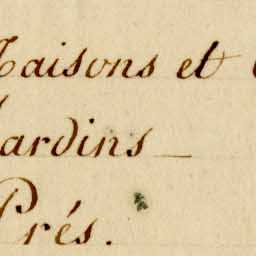 Maisons et
Jardins
Prés.